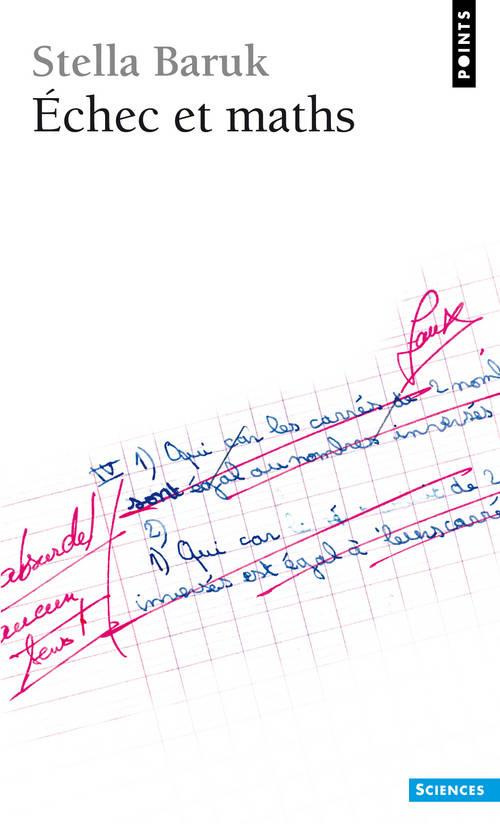 Stella Baruk
Échec et maths
POINTS
faux
IV 1) Oui car les carrés de 2 nom
sont égal au nombres inversés
2)
1) Oui car de 2
inversés est égal à leurs carré
absurde!
aucun
sens!
SCIENCES